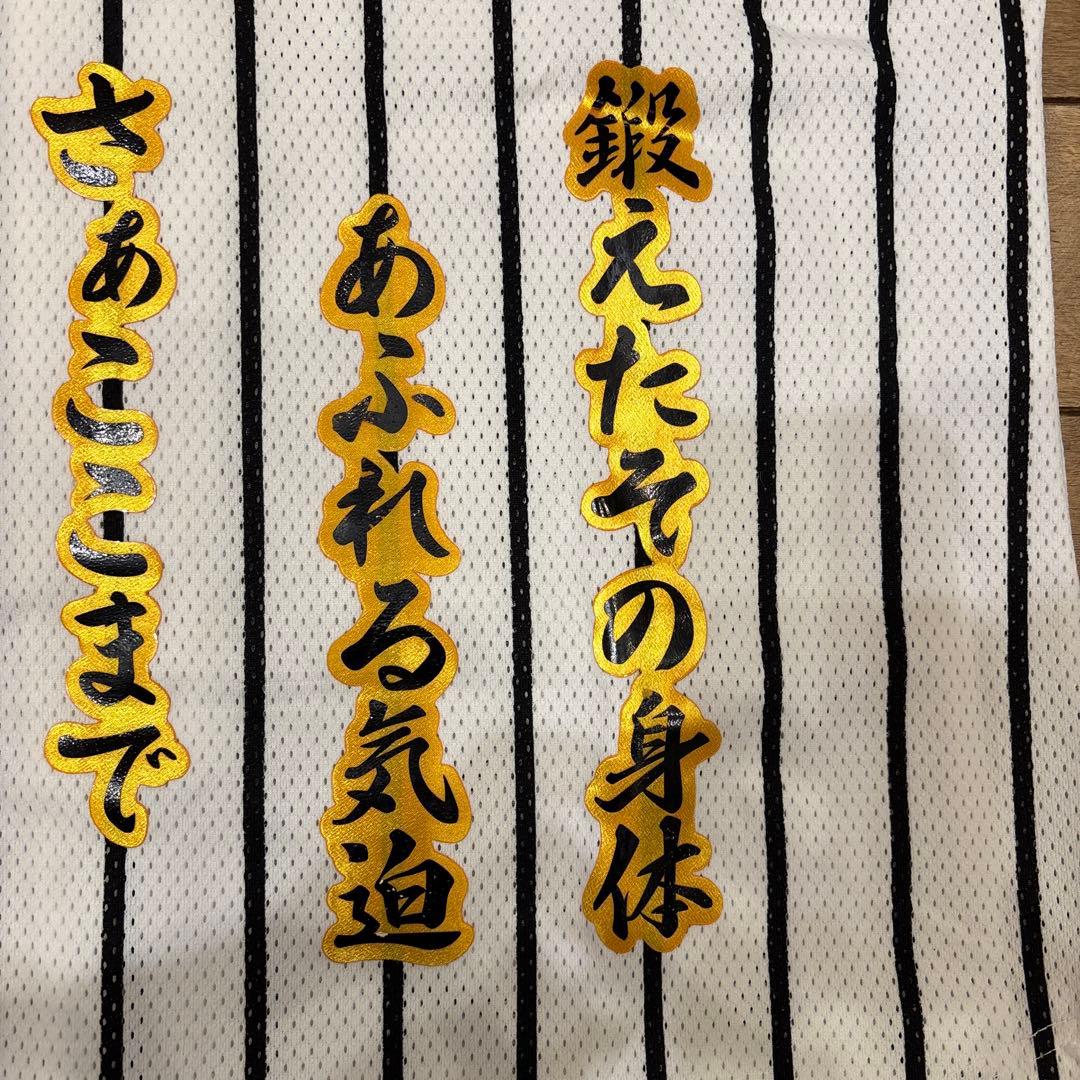 鍛えたその身体
あふれる気迫
さぁここまで